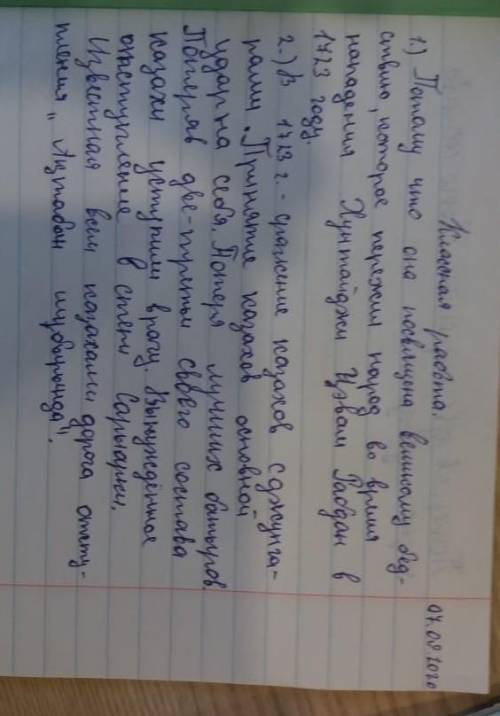 07.09.2020
Классная работа.
1.) Потому что она посвящена великому бед-
ствию, которое пережил народ во время
нападения Хунтайджи Цэван Рабдан в
1723 году.
2.) В 1723 г. - сражение казахов с джунга-
рами. Принятие казахов основной
удар на себя. Потеря лучших батыров.
Потеряв две-трети своего состава
казахи уступили врагу. Вынужденное
отступление в степи Сарыарки.
Известная всем казахами дорога отсту-
пления "Ақтабан шұбырынды".